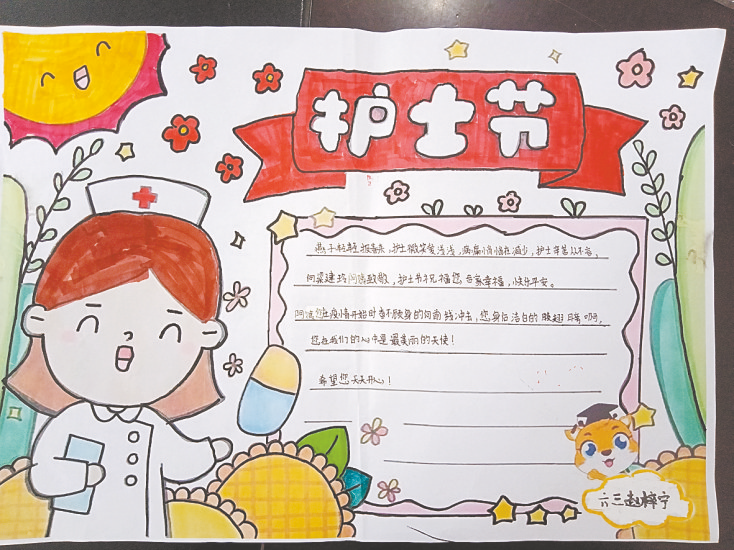 护士节
燕子轻轻报春来,护士微笑爱浅浅,病痛悄悄在减少,护士辛苦从不言。
向梁建玲阿姨致敬,护士节祝福您,合家幸福,快乐平安。
阿姨您在疫情开始时奋不顾身的向前线冲去,您身后洁白的翅膀
您在我们的心中是最美丽的天使!
希望您天天开心!
六三赵梓宁